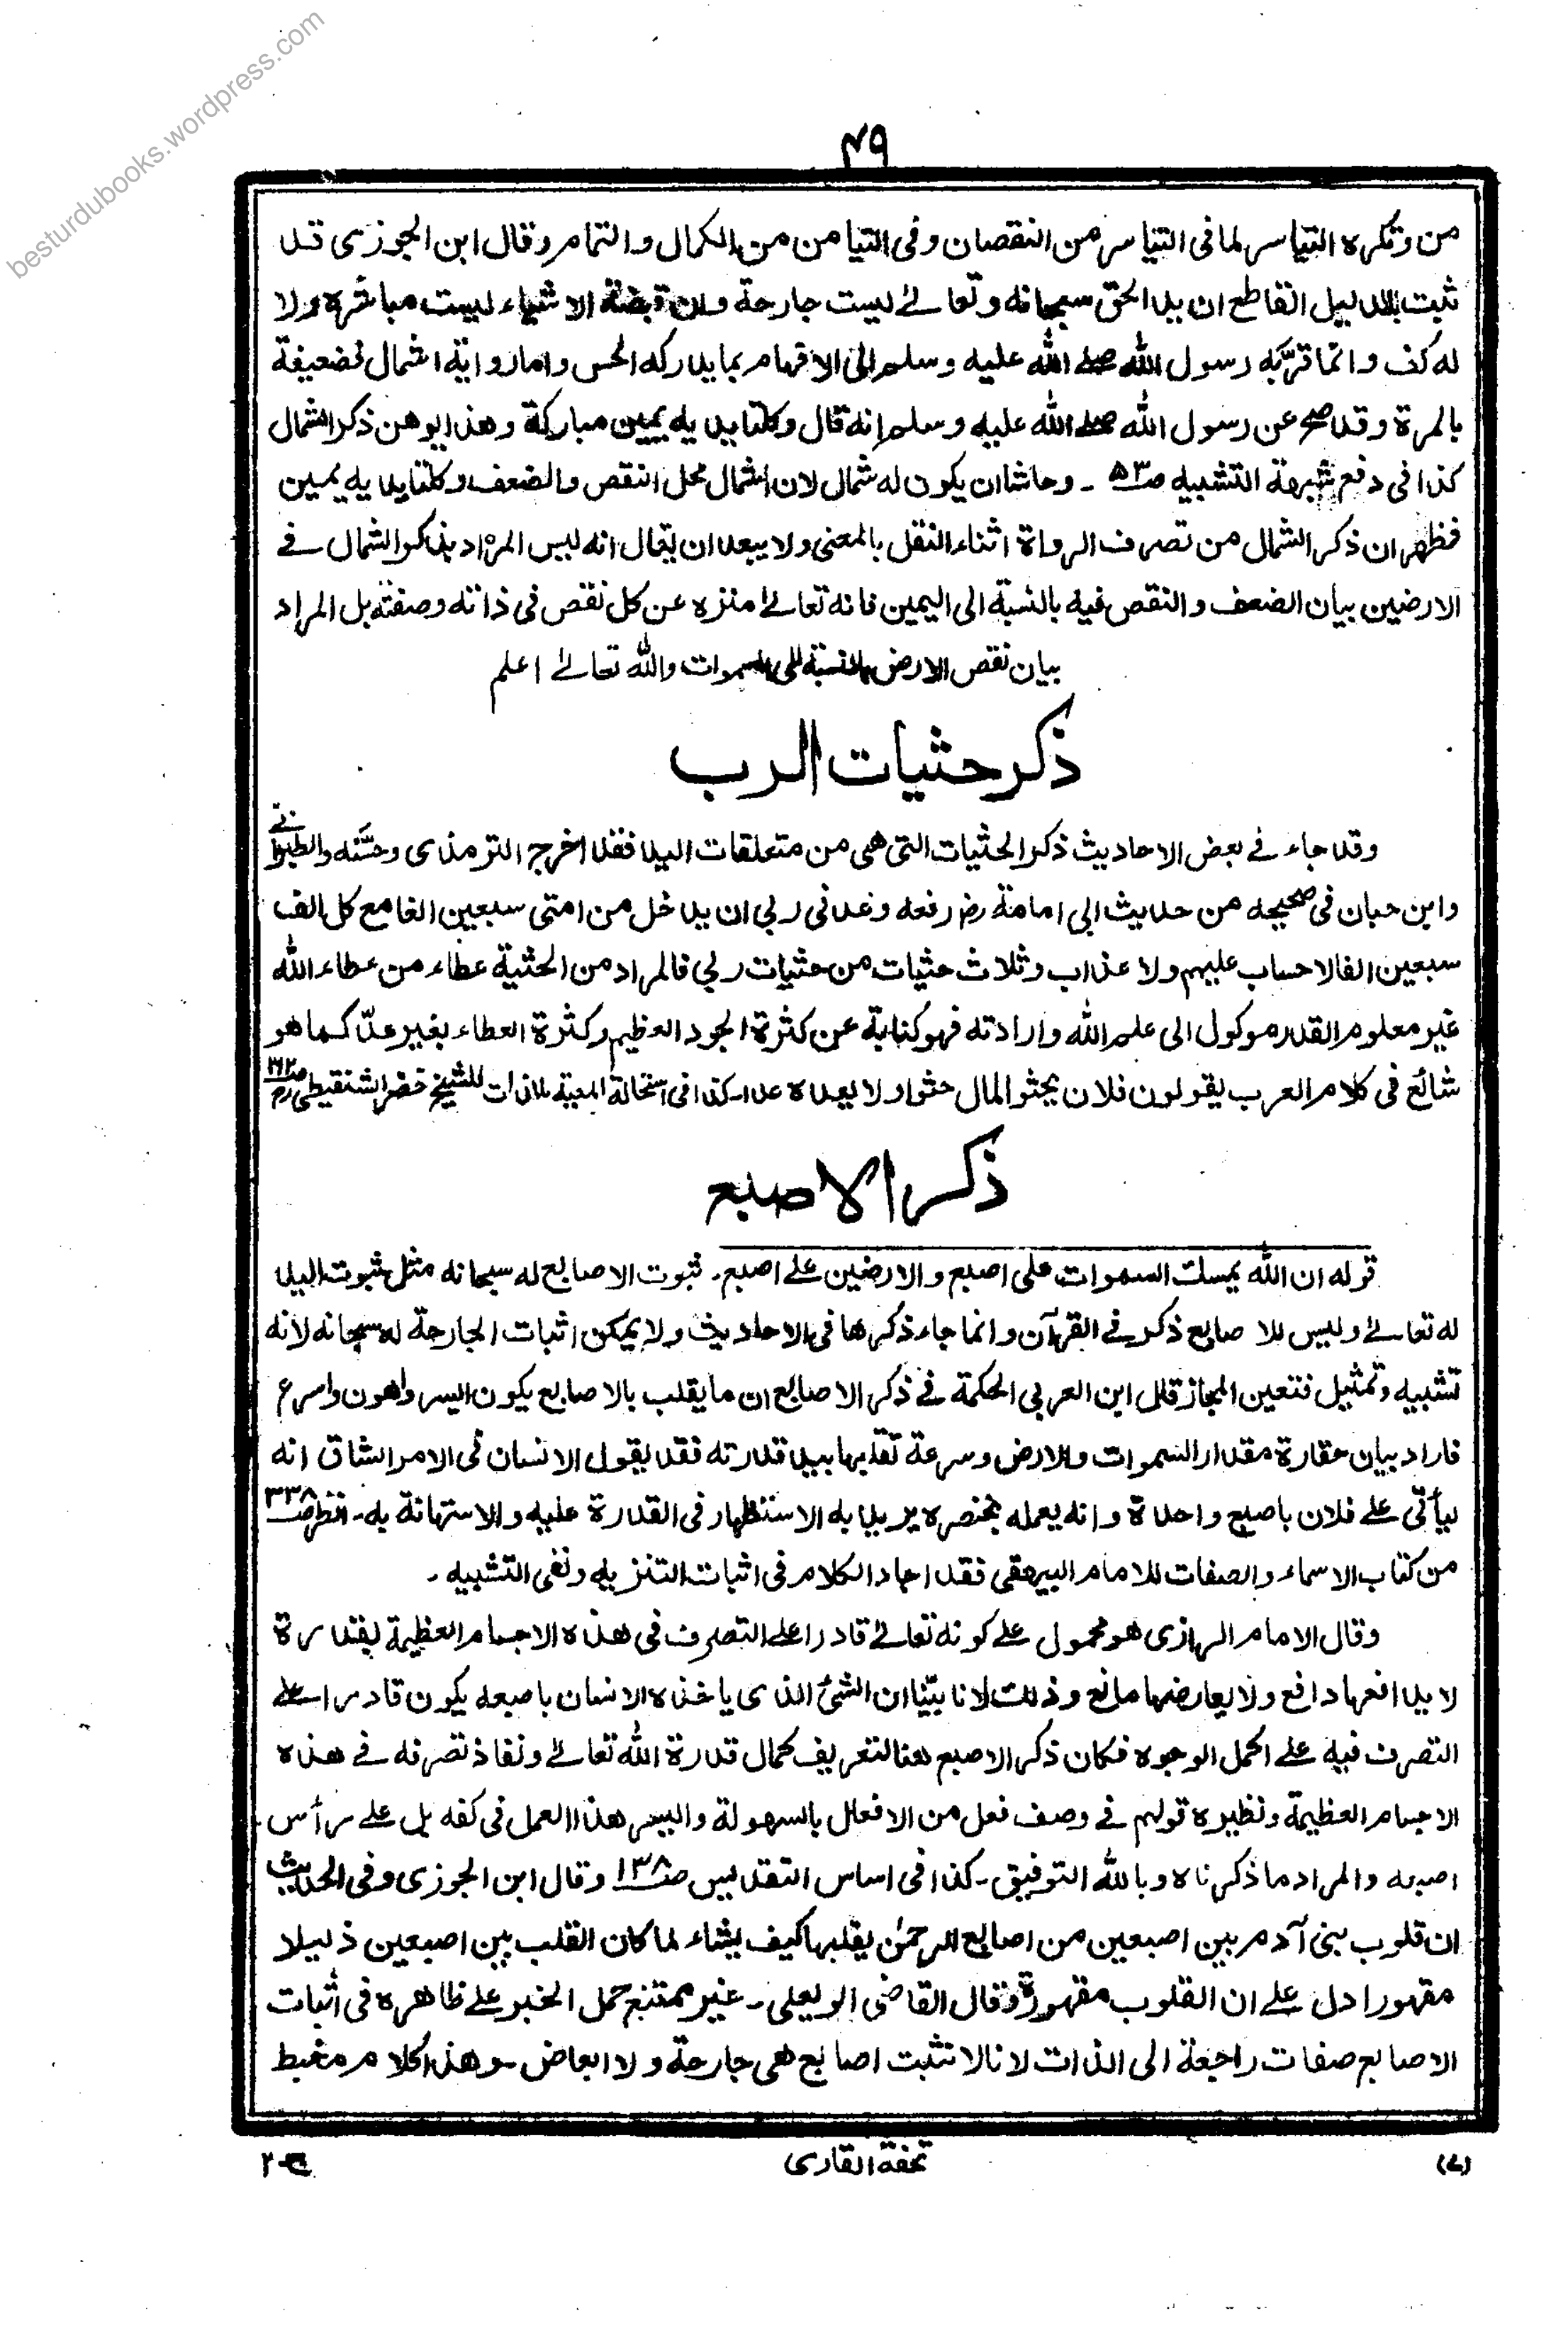 besturdubooks.wordpress.com
۴۹
من وتكره التياسر لما فى التياسر من النقصان وفى التيامن من الكمال والتمام وقال ابن الجوزى قد
ثبت بالدليل القاطع ان يد الحق سبحانه وتعالےٰ ليست جارحة وان قبضته الاشياء ليست مباشرة ولا
له كف وانما قرّبه رسول الله صلے الله عليه وسلم الى الافهام بما يدركه الحس واما رواية الشمال فضعيفة
بالمرة وقد صح عن رسول الله صلے الله عليه وسلم انه قال وكلتا يديه يمين مباركة وهذا يوهن ذكر الشمال
كذا فى دفع شبهة التشبيه صـ۵۳ ـ وحاشا ان يكون له شمال لان الشمال محل النقص والضعف وكلتا يديه يمين
فظهر ان ذكر الشمال من تصرف الرواة اثناء النقل بالمعنى ولا يبعد ان يقال انه ليس المراد بذكر الشمال فے
الارضين بيان الضعف والنقص فيه بالنسبة الى اليمين فانه تعالےٰ منزه عن كل نقص فى ذاته وصفته بل المراد
بيان نقص الارض بالنسبة الى السموات والله تعالےٰ اعلم
ذكر حثيات الرب
وقد جاء فے بعض الاحاديث ذكر الحثيات التى هى من متعلقات اليد فقد اخرج الترمذى وحسّنه والطبرانے
وابن حبان فى صحيحه من حديث ابى امامة رض رفعه وعدنى ربى ان يدخل من امتى سبعين الفا مع كل الف
سبعين الفا لا حساب عليهم ولا عذاب وثلاث حثيات من حثيات ربى فالمراد من الحثية عطاء من عطاء الله
غير معلوم القدر موكول الى علم الله وارادته فهو كناية عن كثرة الجود العظيم وكثرة العطاء بغير عدّ كما هو
شائع فى كلام العرب يقولون فلان يحثو المال حثوا ولا يعده عدا ـ كذا فى استحالة المعية بالذات للشيخ خضر الشنقيطى رح
ذكر الاصبع
قوله ان الله يمسك السموات على اصبع والارضين علے اصبع ـ ثبوت الاصابع له سبحانه مثل ثبوت اليد
له تعالےٰ وليس للاصابع ذكر فے القرآن وانما جاء ذكرها فى الاحاديث ولا يمكن اثبات الجارحة له سبحانه لانه
تشبيه وتمثيل فتعين المجاز قال ابن العربى الحكمة فے ذكر الاصابع ان ما يقلب بالاصابع يكون اليسر واهون واسرع
فاراد بيان حقارة مقدار السموات والارض وسرعة تقلبها بيد قدرته فقد يقول الانسان فى الامر الشاق انه
ليأتى علے فلان باصبع واحدة وانه يعمله بخنصره يريد به الاستظهار فى القدرة عليه والاستهانة به ـ انظر صـ۳۳۸
من كتاب الاسماء والصفات للامام البيهقى فقد اجاد الكلام فى اثبات التنزيه ونفى التشبيه ـ
وقال الامام الرازى هو محمول علے كونه تعالےٰ قادرا علے التصرف فى هذه الاجسام العظيمة بقدرة
لا يدافعها دافع ولا يعارضها مانع وذلك لانا بيّنا ان الشئ الذى ياخذه الانسان باصبعه يكون قادرا علے
التصرف فيه علے اكمل الوجوه فكان ذكر الاصبع هنا لتعريف كمال قدرة الله تعالےٰ ونفاذ تصرفه فے هذه
الاجسام العظيمة ونظيره قولهم فے وصف فعل من الافعال بالسهولة واليسر هذا العمل فى كفه بل على رأس
اصبعه والمراد ما ذكرناه وبالله التوفيق ـ كذا فى اساس التقديس صـ۱۳۸ وقال ابن الجوزى وفى الحديث
ان قلوب بنى آدم بين اصبعين من اصابع الرحمٰن يقلبها كيف يشاء لما كان القلب بين اصبعين ذليلا
مقهورا دل علے ان القلوب مقهورة وقال القاضى ابو يعلى ـ غير ممتنع حمل الخبر علے ظاهره فى اثبات
الاصابع صفات راجعة الى الذات لانا لا نثبت اصابع هى جارحة ولا ابعاض ـ وهذا كلام مخبط
(۷)
تحفة القارى
ج-۲